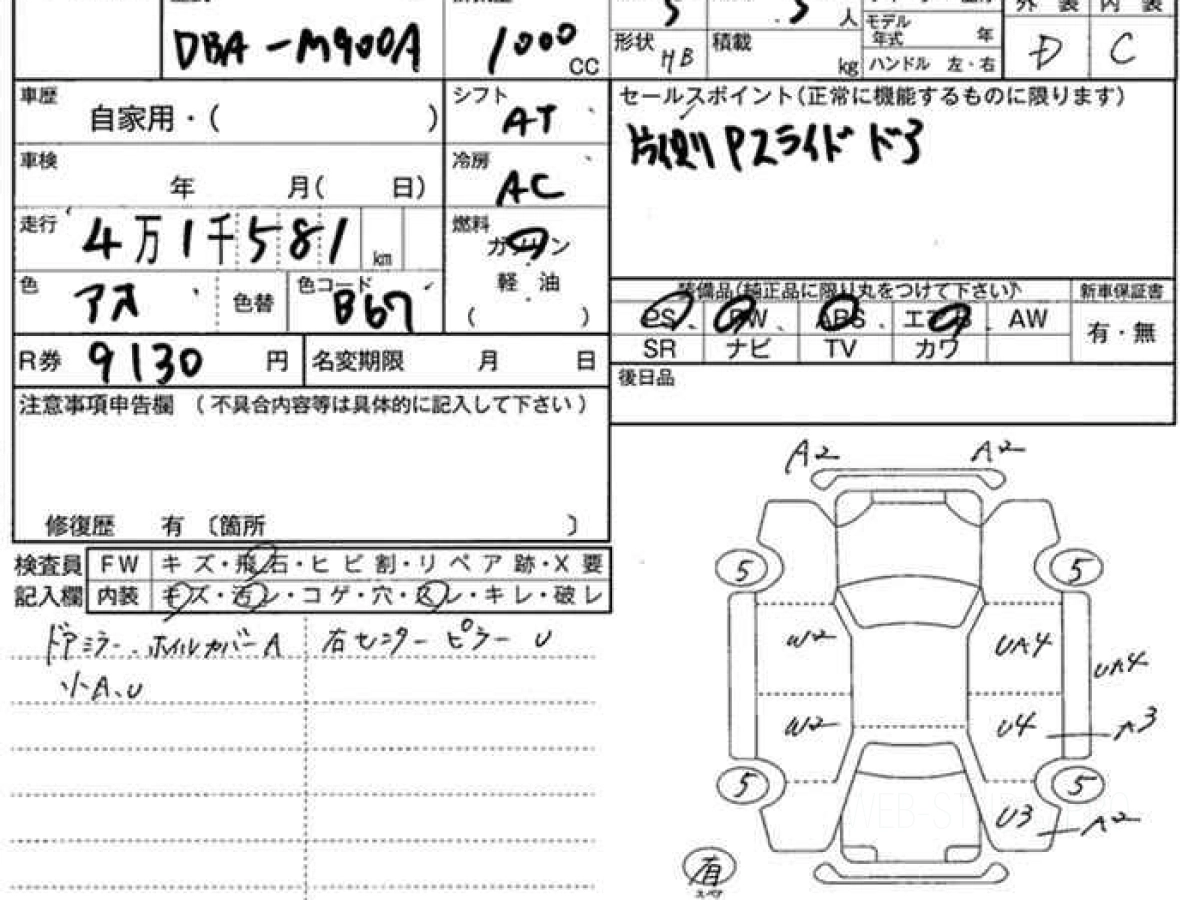 DBA-M900A
1000
CC
5
5
人
モデル
年式
年
外装
内装
形状
HB
積載
kg
ハンドル 左・右
D
C
車歴
自家用・( )
シフト
AT
セールスポイント(正常に機能するものに限ります)
片側Pスライドドア
車検
年 月( 日)
冷房
AC
走行
4万1千581
km
燃料
ガソリン
軽 油
( )
色
アオ
色替
色コード
B67
装備品(純正品に限り丸をつけて下さい)
新車保証書
PS
PW
ABS
エアB
AW
有・無
SR
ナビ
TV
カワ
R券
9130
円
名変期限
月
日
後日品
注意事項申告欄 (不具合内容等は具体的に記入して下さい)
修復歴 有 〔箇所 〕
検査員
記入欄
FW
キズ・飛石・ヒビ割・リペア跡・X要
内装
キズ・汚レ・コゲ・穴・スレ・キレ・破レ
ドアミラー、ホイルカバーA
右センターピラー U
小A、U
A2
A2
5
5
W2
UA4
UA4
W2
U4
A3
5
5
U3
A2
有
スペア